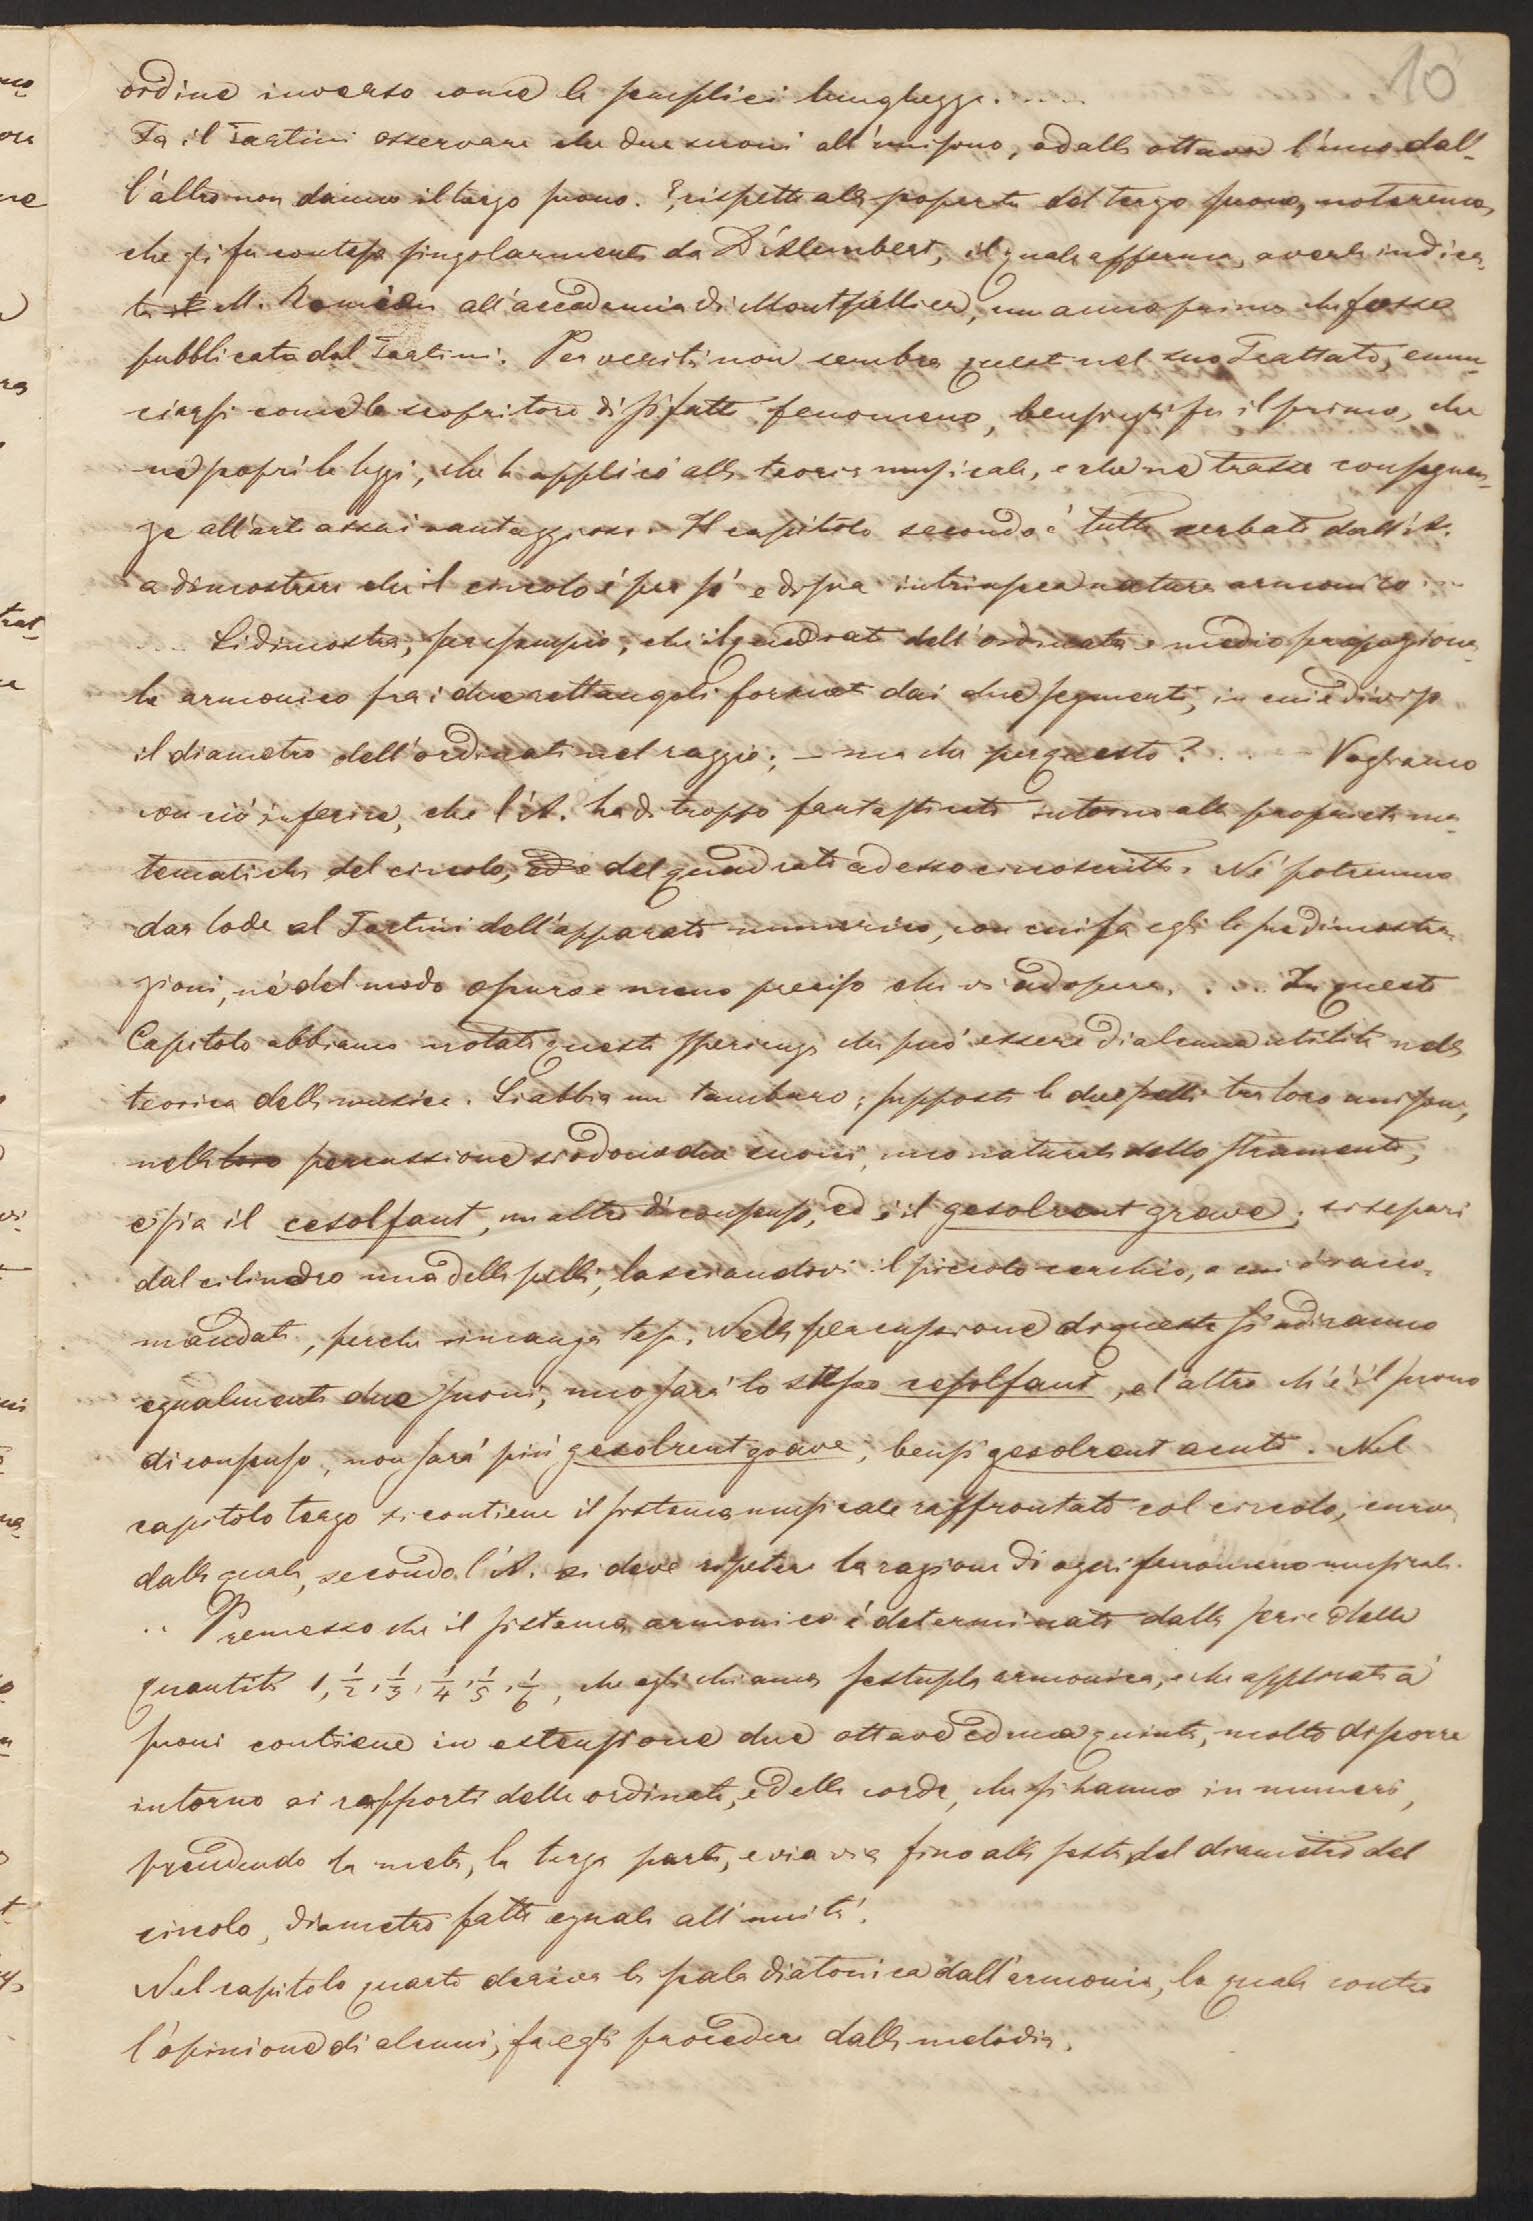 10
ordine inverso come le semplici lunghezze. ....
Fa il Tartini osservare che due suoni all'unisono, od alla ottava l'uno dal-
l'altro non danno il terzo suono. E, rispetto alla scoperta del terzo suono, noteremo,
che gli fu conteso singolarmente da D'Alembert, il quale afferma, averla indica-
ta M. Romieu all'accademia di Montpellier, un anno prima che fosse
pubblicata dal Tartini. Per verità non sembra questi nel suo Trattato, enun-
ciarsi come lo scopritore di sì fatto fenomeno, bensì egli fu il primo, che
ne scoprì le leggi, che le applicò alla teoria musicale, e che ne trasse conseguen-
ze all'arte assai vantaggiose. Il capitolo secondo è tutto serbato dall'A.
a dimostrare che il circolo è per sé e di sua intrinseca natura armonico ...
Si dimostra, per esempio, che il quadrato dell'ordinata è medio proporziona-
le armonico fra i due rettangoli formati dai due segmenti, in cui è diviso
il diametro dell'ordinata nel raggio; — ma che per questo? ... — Vogliamo
con ciò inferire, che l'A. ha di troppo fantasticato intorno alle proprietà ma-
tematiche del circolo, e del quadrato ad esso circoscritto. Né potremmo
dar lode al Tartini dell'apparato numerico, con cui fa egli le sue dimostra-
zioni, né del modo oscuro e meno preciso che vi adopera. ... In questo
Capitolo abbiamo notato questa sperienza che può essere di alcuna utilità nella
teorica della musica. Si abbia un tamburo; supposte le due pelli tra loro unisone,
nella loro percussione si odono due suoni, uno naturale dello stramento,
e sia il cesolfaut, un altro di consenso, ed è il gesolreut grave; si separi
dal cilindro una delle pelli, lasciandovi il piccolo cerchio, a cui è racco-
mandata, perché rimanga tesa. Nella percussione di questa si udiranno
egualmente due suoni, uno sarà lo stesso cesolfaut, e l'altro ch'è il suono
di consenso, non sarà più gesolreut grave, bensì gesolreut acuto. Nel
capitolo terzo si contiene il sistema musicale raffrontato col circolo, curva
dalla quale, secondo l'A. si deve ripetere la ragione di ogni fenomeno musicale.
.. Premesso che il sistema armonico è determinato dalla serie delle
quantità 1, 1/2, 1/3, 1/4, 1/5, 1/6, che egli chiama sestupla armonica, e che applicata a'
suoni contiene in estensione due ottave ed una quinta, molto discorre
intorno ai rapporti delle ordinate, e delle corde, che si hanno in numeri,
prendendo la metà, la terza parte, e via via fino alla sesta del diametro del
circolo, diametro fatto eguale all'unità.
Nel capitolo quarto deriva la scala diatonica dall'armonia, la quale contro
l'opinione di alcuni, fa egli procedere dalla melodia.